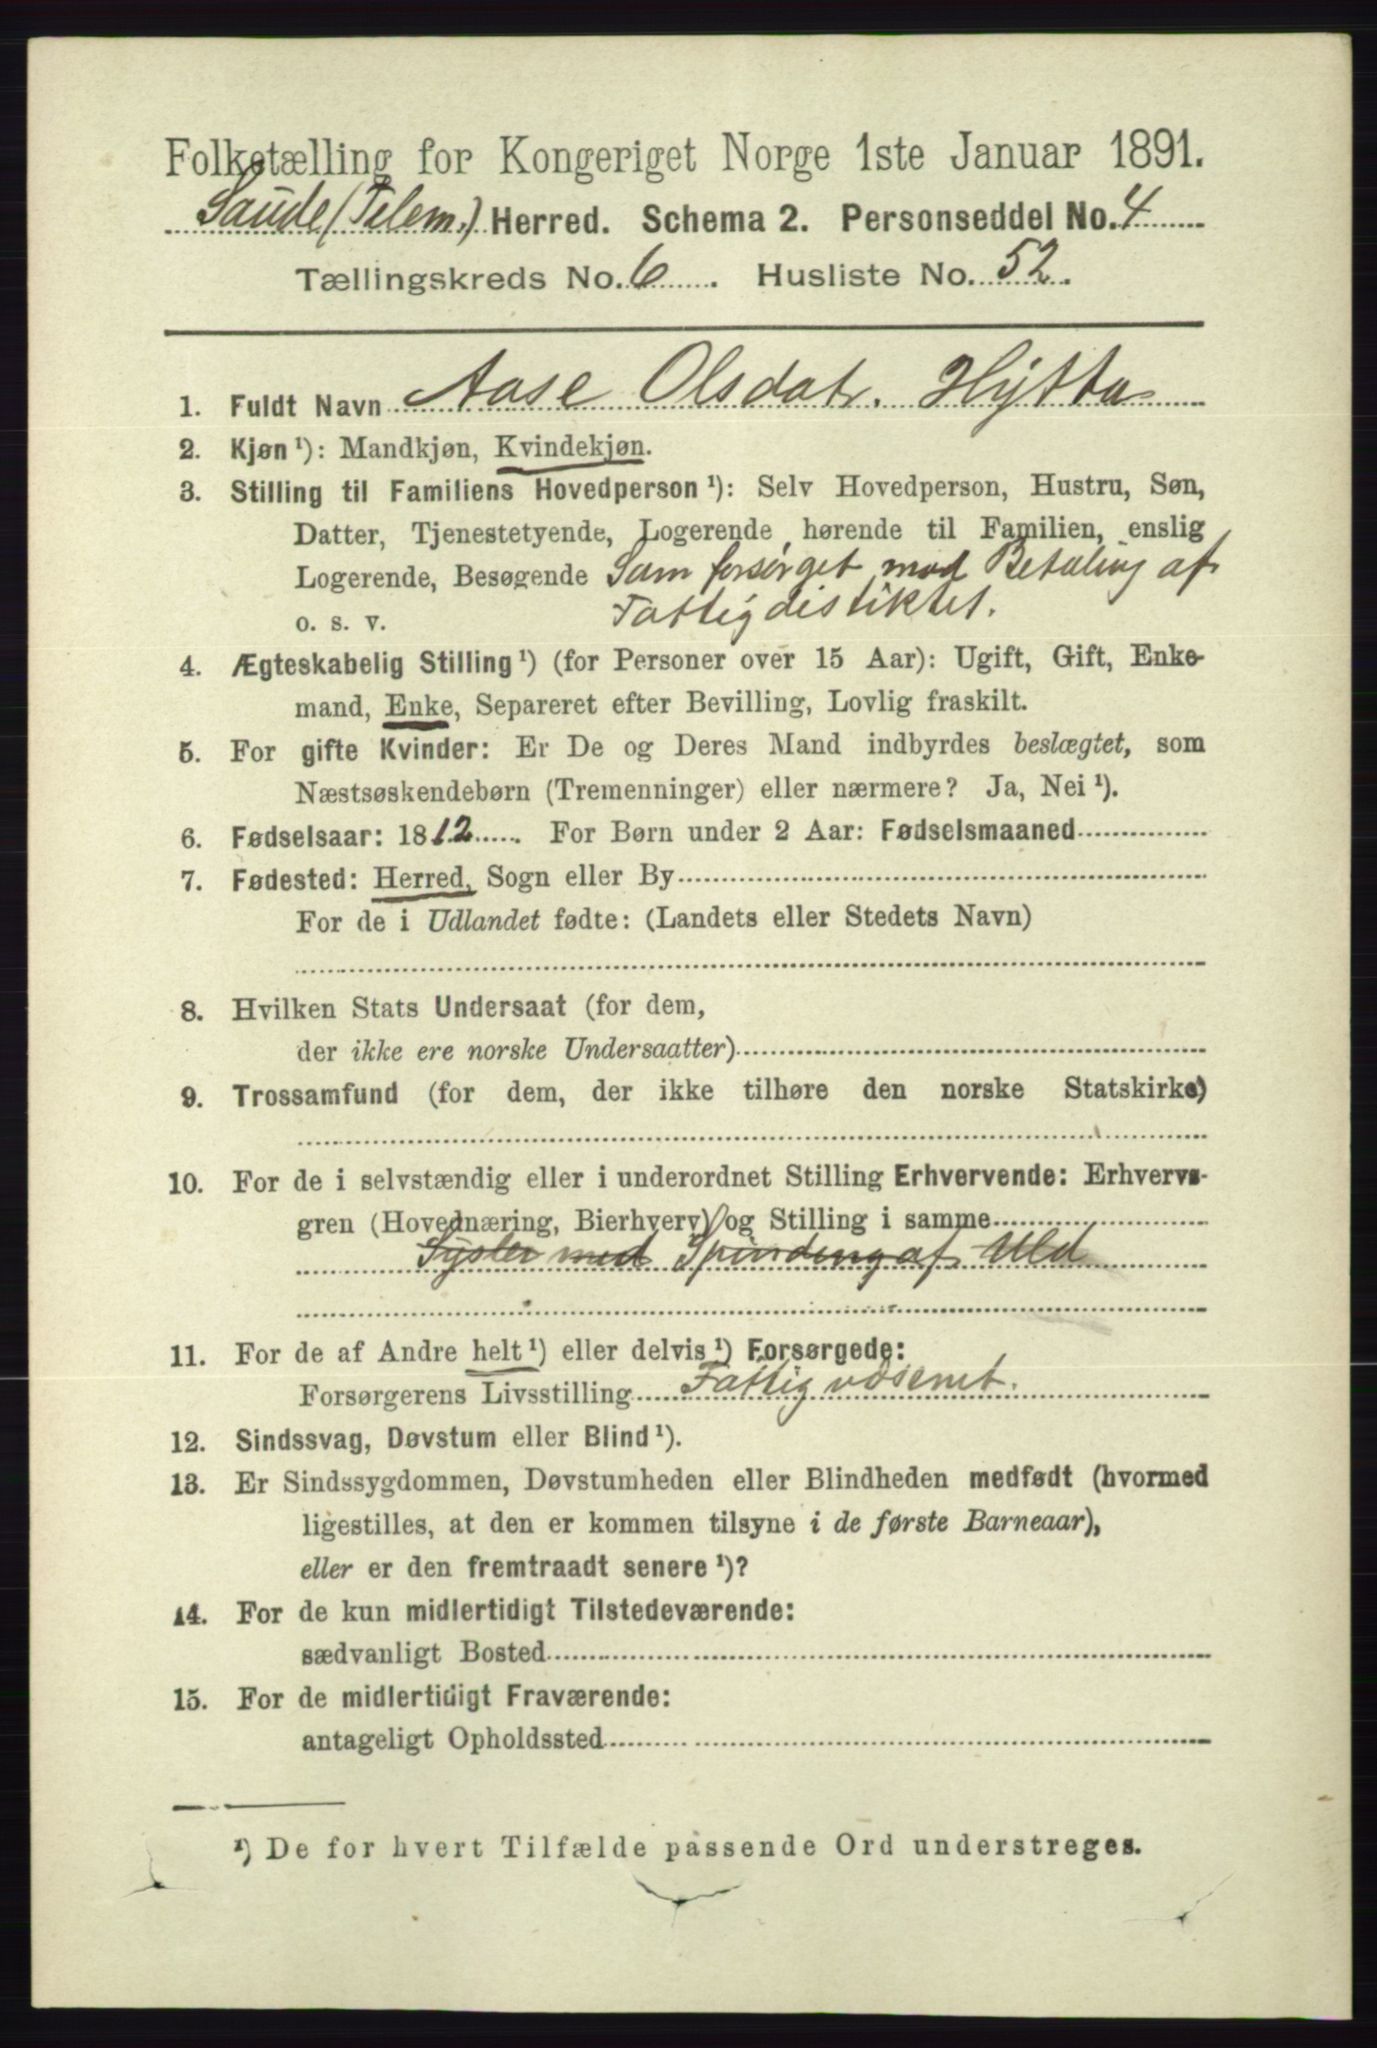 Folketælling for Kongeriget Norge 1ste Januar 1891.
Saude (Telem.) Herred. Schema 2. Personseddel No. 4
Tællingskreds No. 6. Husliste No. 52.
1. Fuldt Navn Aase Olsdatr. Hytta
2. Kjøn ¹): Mandkjøn, Kvindekjøn.
3. Stilling til Familiens Hovedperson ¹): Selv Hovedperson, Hustru, Søn,
Datter, Tjenestetyende, Logerende hørende til Familien, enslig
Logerende, Besøgende Som forsørget mod Betaling af
o. s. v. Fattigdistiktet.
4. Ægteskabelig Stilling ¹) (for Personer over 15 Aar): Ugift, Gift, Enke-
mand, Enke, Separeret efter Bevilling, Lovlig fraskilt.
5. For gifte Kvinder: Er De og Deres Mand indbyrdes beslægtet, som
Næstsøskendebørn (Tremenninger) eller nærmere? Ja, Nei ¹).
6. Fødselsaar: 1812. For Børn under 2 Aar: Fødselsmaaned
7. Fødested: Herred, Sogn eller By
For de i Udlandet fødte: (Landets eller Stedets Navn)
8. Hvilken Stats Undersaat (for dem,
der ikke ere norske Undersaatter)
9. Trossamfund (for dem, der ikke tilhøre den norske Statskirke)
10. For de i selvstændig eller i underordnet Stilling Erhvervende: Erhvervs-
gren (Hovednæring, Bierhverv) og Stilling i samme
Sysler med Spinding af Uld
11. For de af Andre helt ¹) eller delvis ¹) Forsørgede:
Forsørgerens Livsstilling Fattigvæsenet.
12. Sindssvag, Døvstum eller Blind ¹).
13. Er Sindssygdommen, Døvstumheden eller Blindheden medfødt (hvormed
ligestilles, at den er kommen tilsyne i de første Barneaar),
eller er den fremtraadt senere ¹)?
14. For de kun midlertidigt Tilstedeværende:
sædvanligt Bosted
15. For de midlertidigt Fraværende:
antageligt Opholdssted
¹) De for hvert Tilfælde passende Ord understreges.